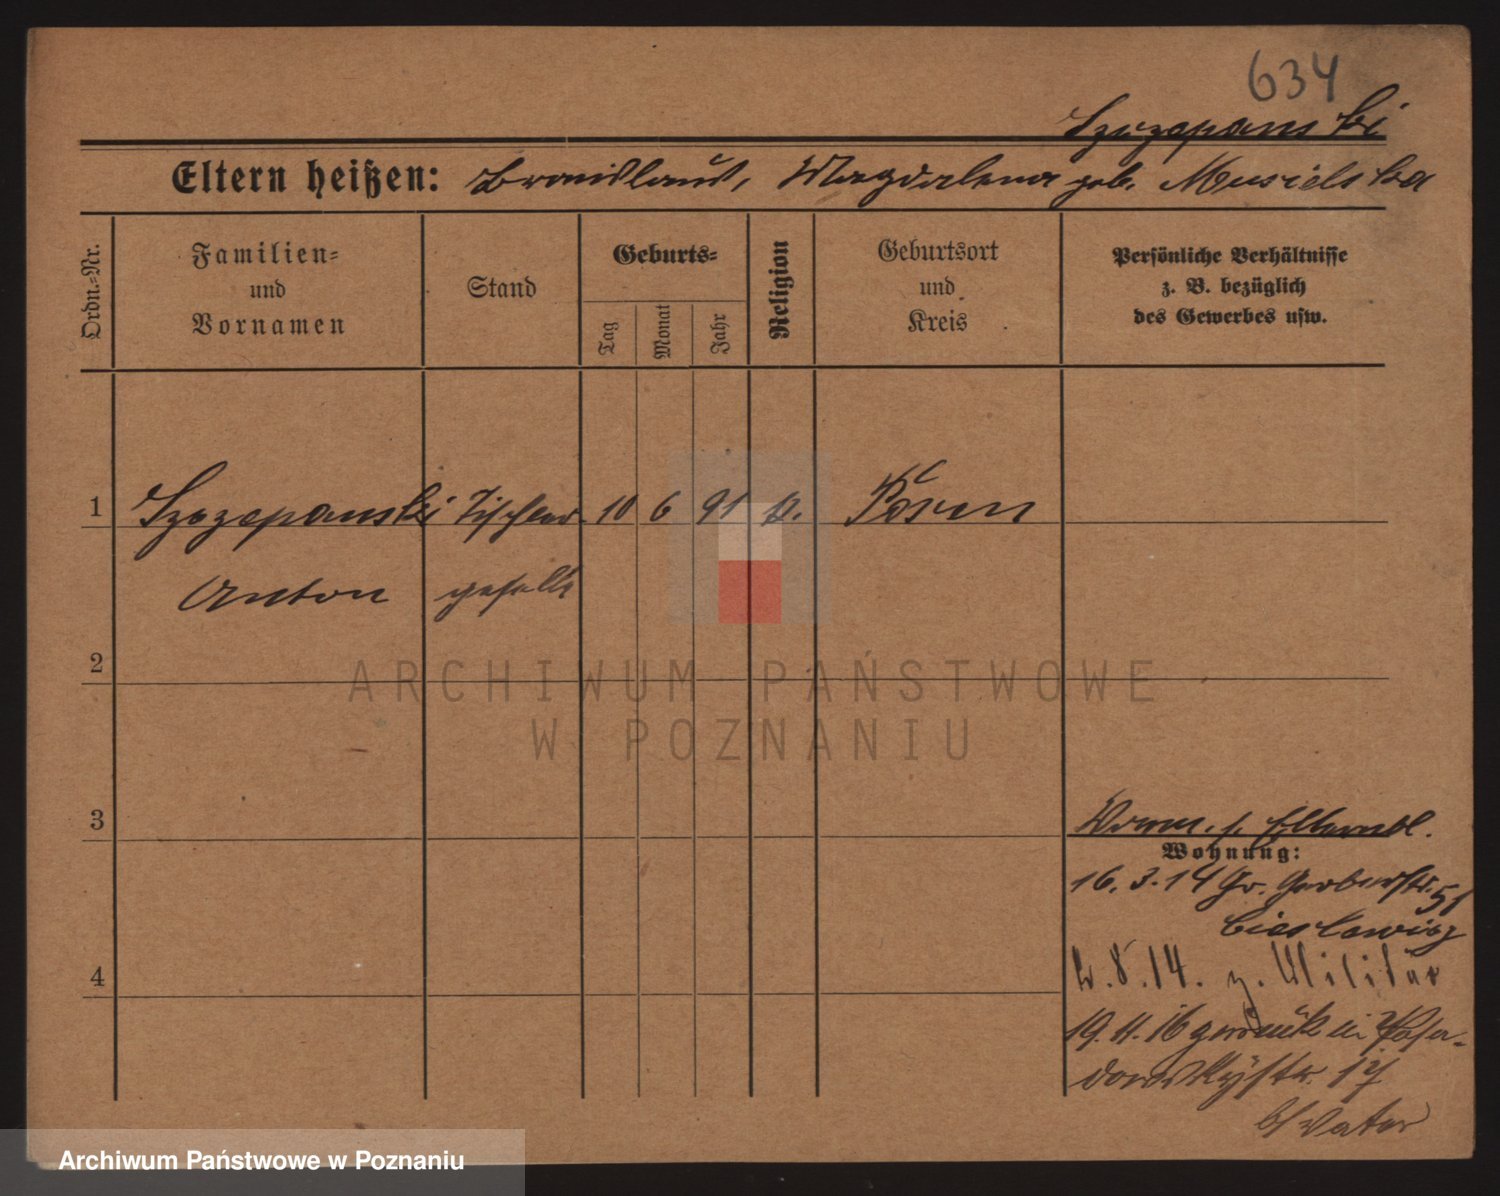 634
Szczepanski
Eltern heißen: Bronislaus, Magdalena geb. Musielska
Ordn.-Nr.
Familien-
und
Vornamen
Stand
Geburts-
Tag
Monat
Jahr
Religion
Geburtsort
und
Kreis
Persönliche Verhältnisse
z. B. bezüglich
des Gewerbes usw.
1 Szczepanski Tischler 10 6 91 k. Posen
Anton geselle
2
3
4
Wohnung:
16. 3. 14 Gr. Gerberstr. 51
8. 14. z. Militär
19. 11. 16 zurück in Posa-
dowskystr. 17
b/ Vater
ARCHIWUM PAŃSTWOWE
W POZNANIU
Archiwum Państwowe w Poznaniu